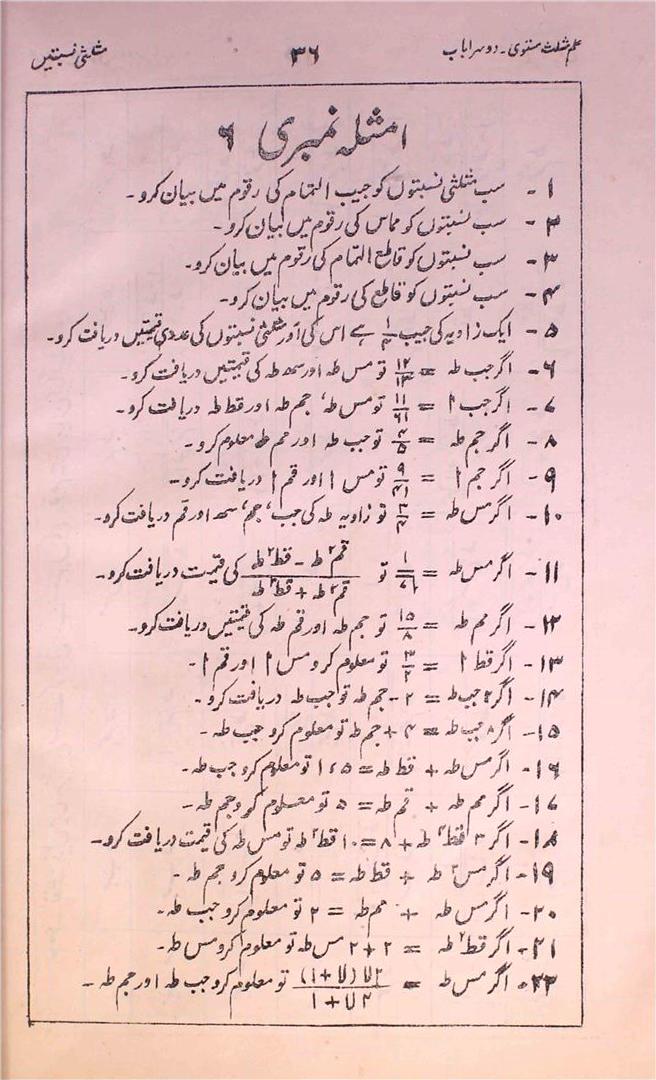 علم مثلث مستوی ۔ دوسرا باب ۳۶ مثلثی نسبتیں
امثلہ نمبری ۶
۱ - سب مثلثی نسبتوں کو جیب التمام کی رقوم میں بیان کرو ۔
۲ - سب نسبتوں کو مماس کی رقوم میں بیان کرو ۔
۳ - سب نسبتوں کو قاطع التمام کی رقوم میں بیان کرو ۔
۴ - سب نسبتوں کو قاطع کی رقوم میں بیان کرو ۔
۵ - ایک زاویہ کی جیب ۱/۴ ہے اس کی اَور مثلثی نسبتوں کی عددی قیمتیں دریافت کرو ۔
۶ - اگر جب طہ = ۱۲/۱۳ تو مس طہ اور سہم طہ کی قیمتیں دریافت کرو ۔
۷ - اگر جب ا = ۱۱/۶۱ تو مس طہ ، جم طہ اور قط طہ دریافت کرو ۔
۸ - اگر جم طہ = ۴/۵ تو جب طہ اور مم طہ معلوم کرو ۔
۹ - اگر جم ا = ۹/۴۱ تو مس ا اور قم ا دریافت کرو ۔
۱۰ - اگر مس طہ = ۳/۴ تو زاویہ طہ کی جب ، جم ، سہم اور قم دریافت کرو ۔
۱۱ - اگر مس طہ = ۱/√۷ تو (قم۲ طہ - قط۲ طہ)/(قم۲ طہ + قط۲ طہ) کی قیمت دریافت کرو ۔
۱۲ - اگر مم طہ = ۱۵/۸ تو جم طہ اور قم طہ کی قیمتیں دریافت کرو ۔
۱۳ - اگر قط ا = ۳/۲ تو معلوم کرو مس ا اور قم ا ۔
۱۴ - اگر ۲ جب طہ = ۲ - جم طہ تو جب طہ دریافت کرو ۔
۱۵ - اگر ۸ جب طہ = ۴ + جم طہ تو معلوم کرو جب طہ ۔
۱۶ - اگر مس طہ + قط طہ = ۱٫۵ تو معلوم کرو جب طہ ۔
۱۷ - اگر مم طہ + قم طہ = ۵ تو معلوم کرو جم طہ ۔
۱۸ - اگر ۳ قط۴ طہ + ۸ = ۱۰ قط۲ طہ تو مس طہ کی قیمت دریافت کرو ۔
۱۹ - اگر مس۲ طہ + قط طہ = ۵ تو معلوم کرو جم طہ ۔
۲۰ - اگر مس طہ + مم طہ = ۲ تو معلوم کرو جب طہ ۔
۲۱ - اگر قط۲ طہ = ۲ + ۲ مس طہ تو معلوم کرو مس طہ ۔
۲۲ - اگر مس طہ = ۲ لا (لا + ۱)/(۲ لا + ۱) تو معلوم کرو جب طہ اور جم طہ ۔